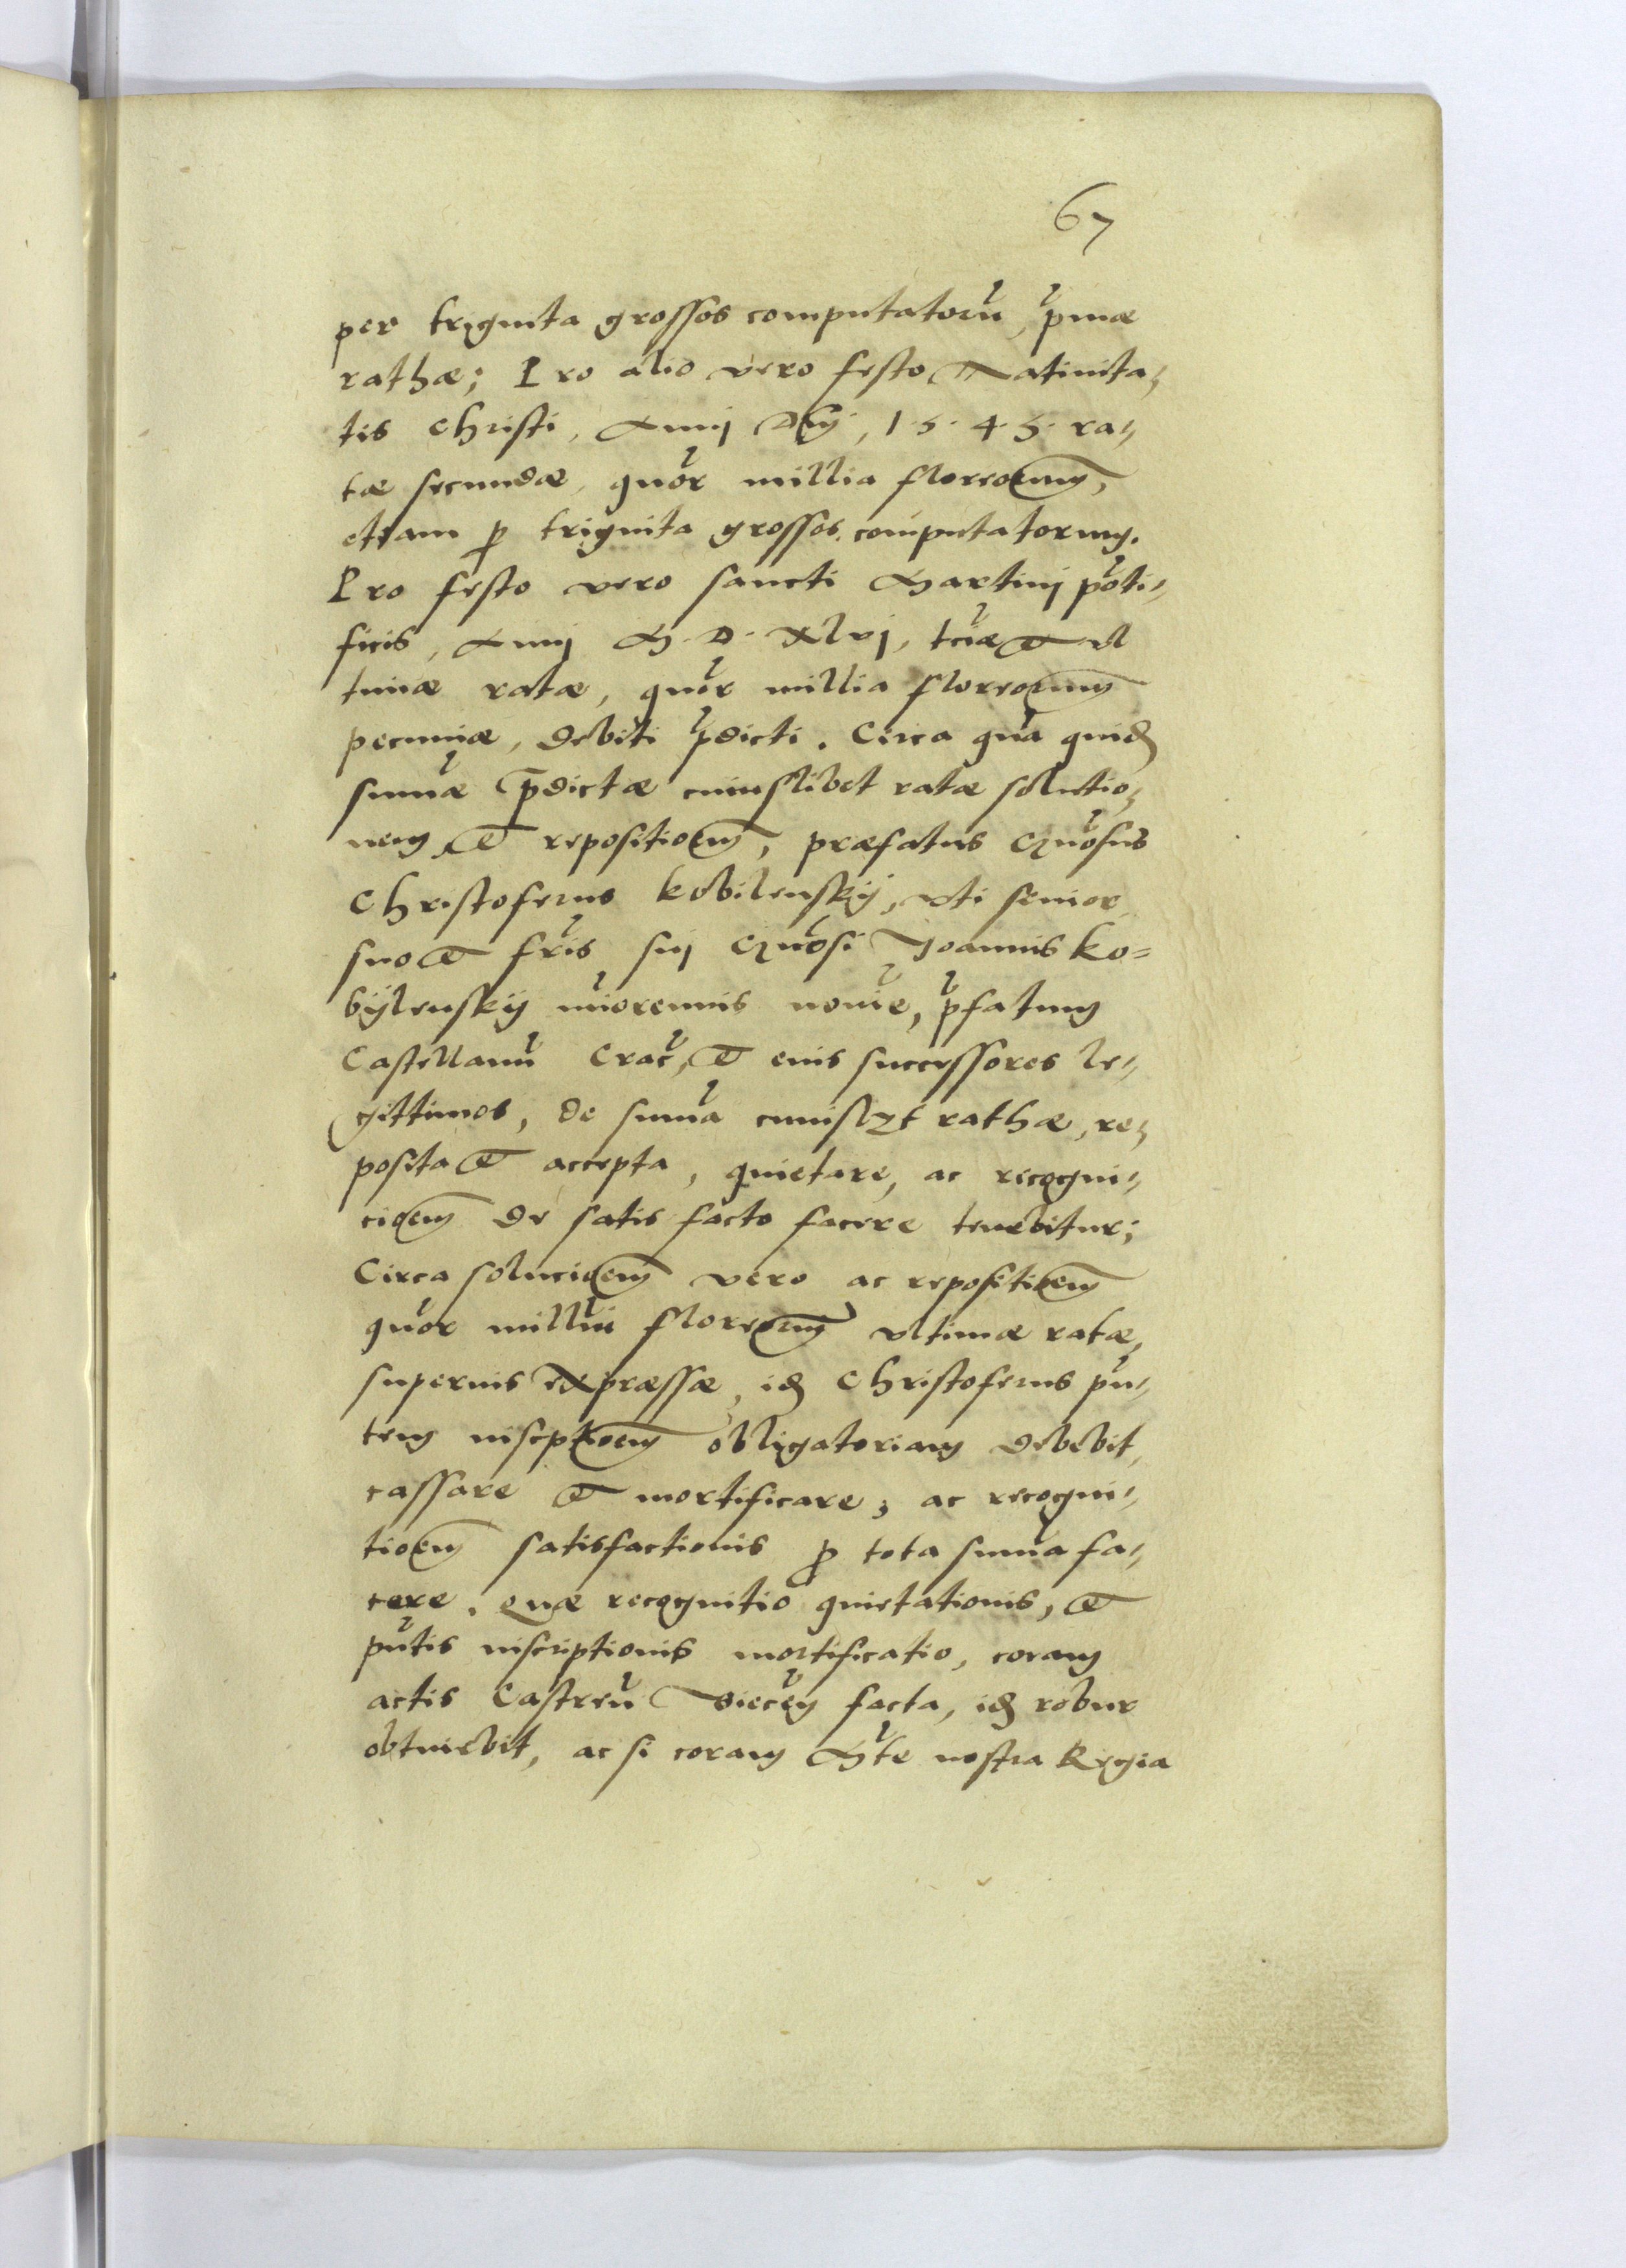 67
per triginta grossos computatorũ, p̃mæ
rathæ; Pro alio vero festo Natiuita„
tis Christi, Annj Dnj, 1.5.4.5. ra„
tæ secundæ, quõr millia floreorum,
etiam p triginta grossos computatorum.
Pro festo vero sancti Martinj põti„
ficis, Annj M.D.Xlvj, tciæ et vl
timæ ratæ, quõr millia floreorum
pecuniæ, debiti p̃dicti. Circa quã quidẽ
sum̃æ p̃dictæ cuiuslibet ratæ solutio„
nem, et repositioem, præfatus Gñosus
Christoferus Kobilenskÿ, vti senior
suo et fr̃is suj Gñosi Joannis Ko=
bÿlenskÿ mĩorennis noĩe, p̃fatum
Castellanũ Crac̃, et eius successores le„
gittimos, de sum̃a cuuislʒt rathæ, re„
posita et accepta, quietare, ac recogni„
cioem de satis facto facere tenebitur;
Circa solucioem vero ac repositioem
quõr milliũ floreorum vltimæ ratæ,
superius expræssæ, idẽ Christoferus pñ„
tem inscptioem obligatoriam debebit,
cassare et mortificare, ac recogni„
tioem satisfactionis p tota sum̃a fa„
cere. Quæ recognitio quietationis, et
pñtis inscriptionis mortificatio, coram
actis Castreñ Biecẽn facta, idẽ robur
obtinebit, ac si coram Mt̃e nostra Regia